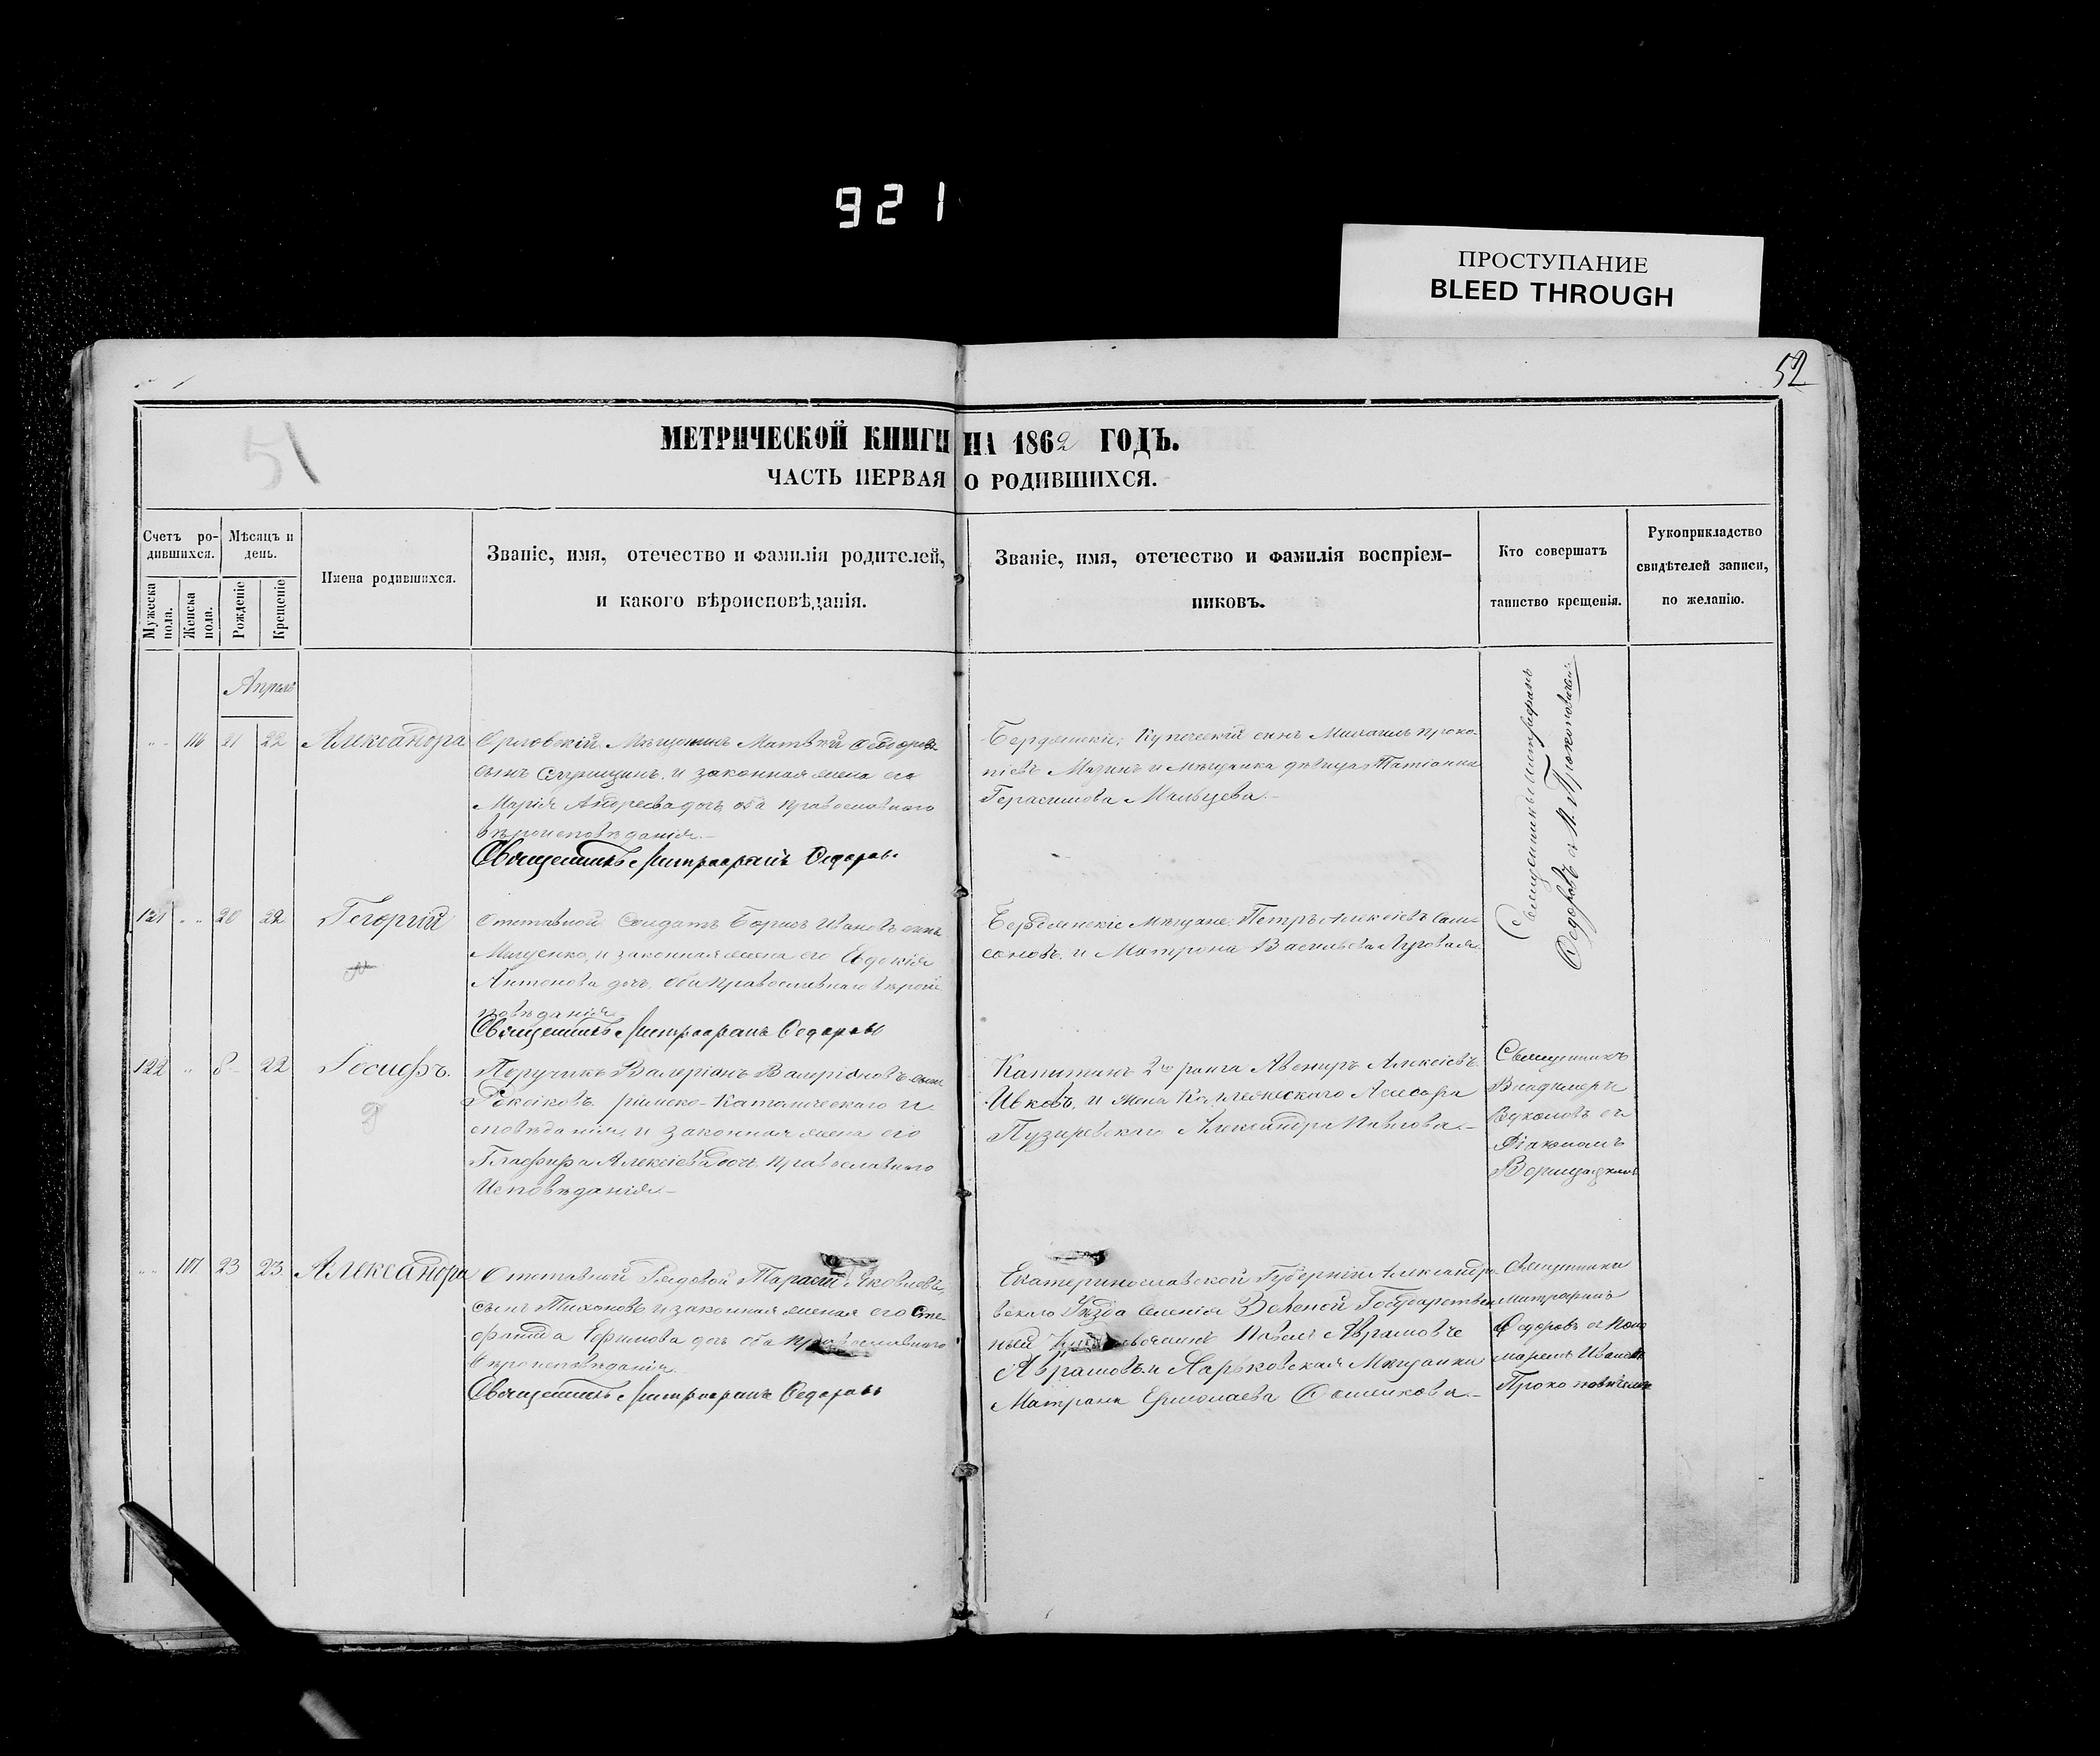 921
ПРОСТУПАНИЕ
BLEED THROUGH
52
51
МЕТРИЧЕСКОЙ КНИГИ НА 1862 ГОДЪ.
ЧАСТЬ ПЕРВАЯ О РОДИВШИХСЯ.
Счетъ ро-
дившихся.
Мѣсяцъ и
день.
Мужеска
пола.
Женска
пола.
Рожденіе
Крещеніе
Имена родившихся.
Званіе, имя, отечество и фамилія родителей,
и какого вѣроисповѣданія.
Званіе, имя, отечество и фамилія воспріем-
никовъ.
Кто совершатъ
таинство крещенія.
Рукоприкладство
свидѣтелей записи,
по желанію.
Апрель
116 21 22 Александра
Орловскій Мѣщанинъ Матвѣй
сынъ и законная жена его
Марія Андреева дочь оба православнаго
вѣроисповѣданія.
Священникъ Митрофанъ Федоровъ
Бердянскіе: Купеческій сынъ Михаилъ Проко-
піевъ Мазинъ и Мѣщанка дѣвица Татіанна
Герасимова Мальцева.
Священникъ Митрофанъ
Федоровъ съ П. Прокоповичемъ
121 20 22 Георгій
Отставной Солдатъ Борисъ Ивановъ сынъ
Мищенко, и законная жена его Евдокія
Антонова дочь, оба православнаго вѣроис-
повѣданія
Священникъ Митрофанъ Федоровъ
Бердянскіе Мѣщане: Петръ Алексіевъ Сам-
соновъ и Матрона Васильева Луговая
122 8 22 Іосифъ.
Поручикъ Валеріанъ Валеріановъ сынъ
римско-Католическаго и
сповѣданія, и законная жена его
Глафира Алексіева дочь православнаго
Исповѣданія.
Капитанъ 2го ранга Авениръ Алексіевъ
Ивковъ, и жена Коллежскаго Асесора
Пузыревскаго Александра Павлова.
Священникъ
Владимеръ
съ
Діакономъ
117 23 23 Александра
Отставной Рядовой Тарасій Яковлевъ
сынъ Тихоновъ и законная жена его Сте-
фанида Ефимова дочь оба православнаго
вѣроисповѣданія
Священникъ Митрофанъ Федоровъ
Екатеринославской Губерніи Александро-
вскаго Уѣзда селенія Зеленой Государствен
ный Павелъ Аврамовъ
Аврамовъ и Харьковская Мѣщанка
Матрона Ермолаева
Священникъ
Митрофанъ
Федоровъ съ Поно
маремъ Иваномъ
Прокоповичемъ